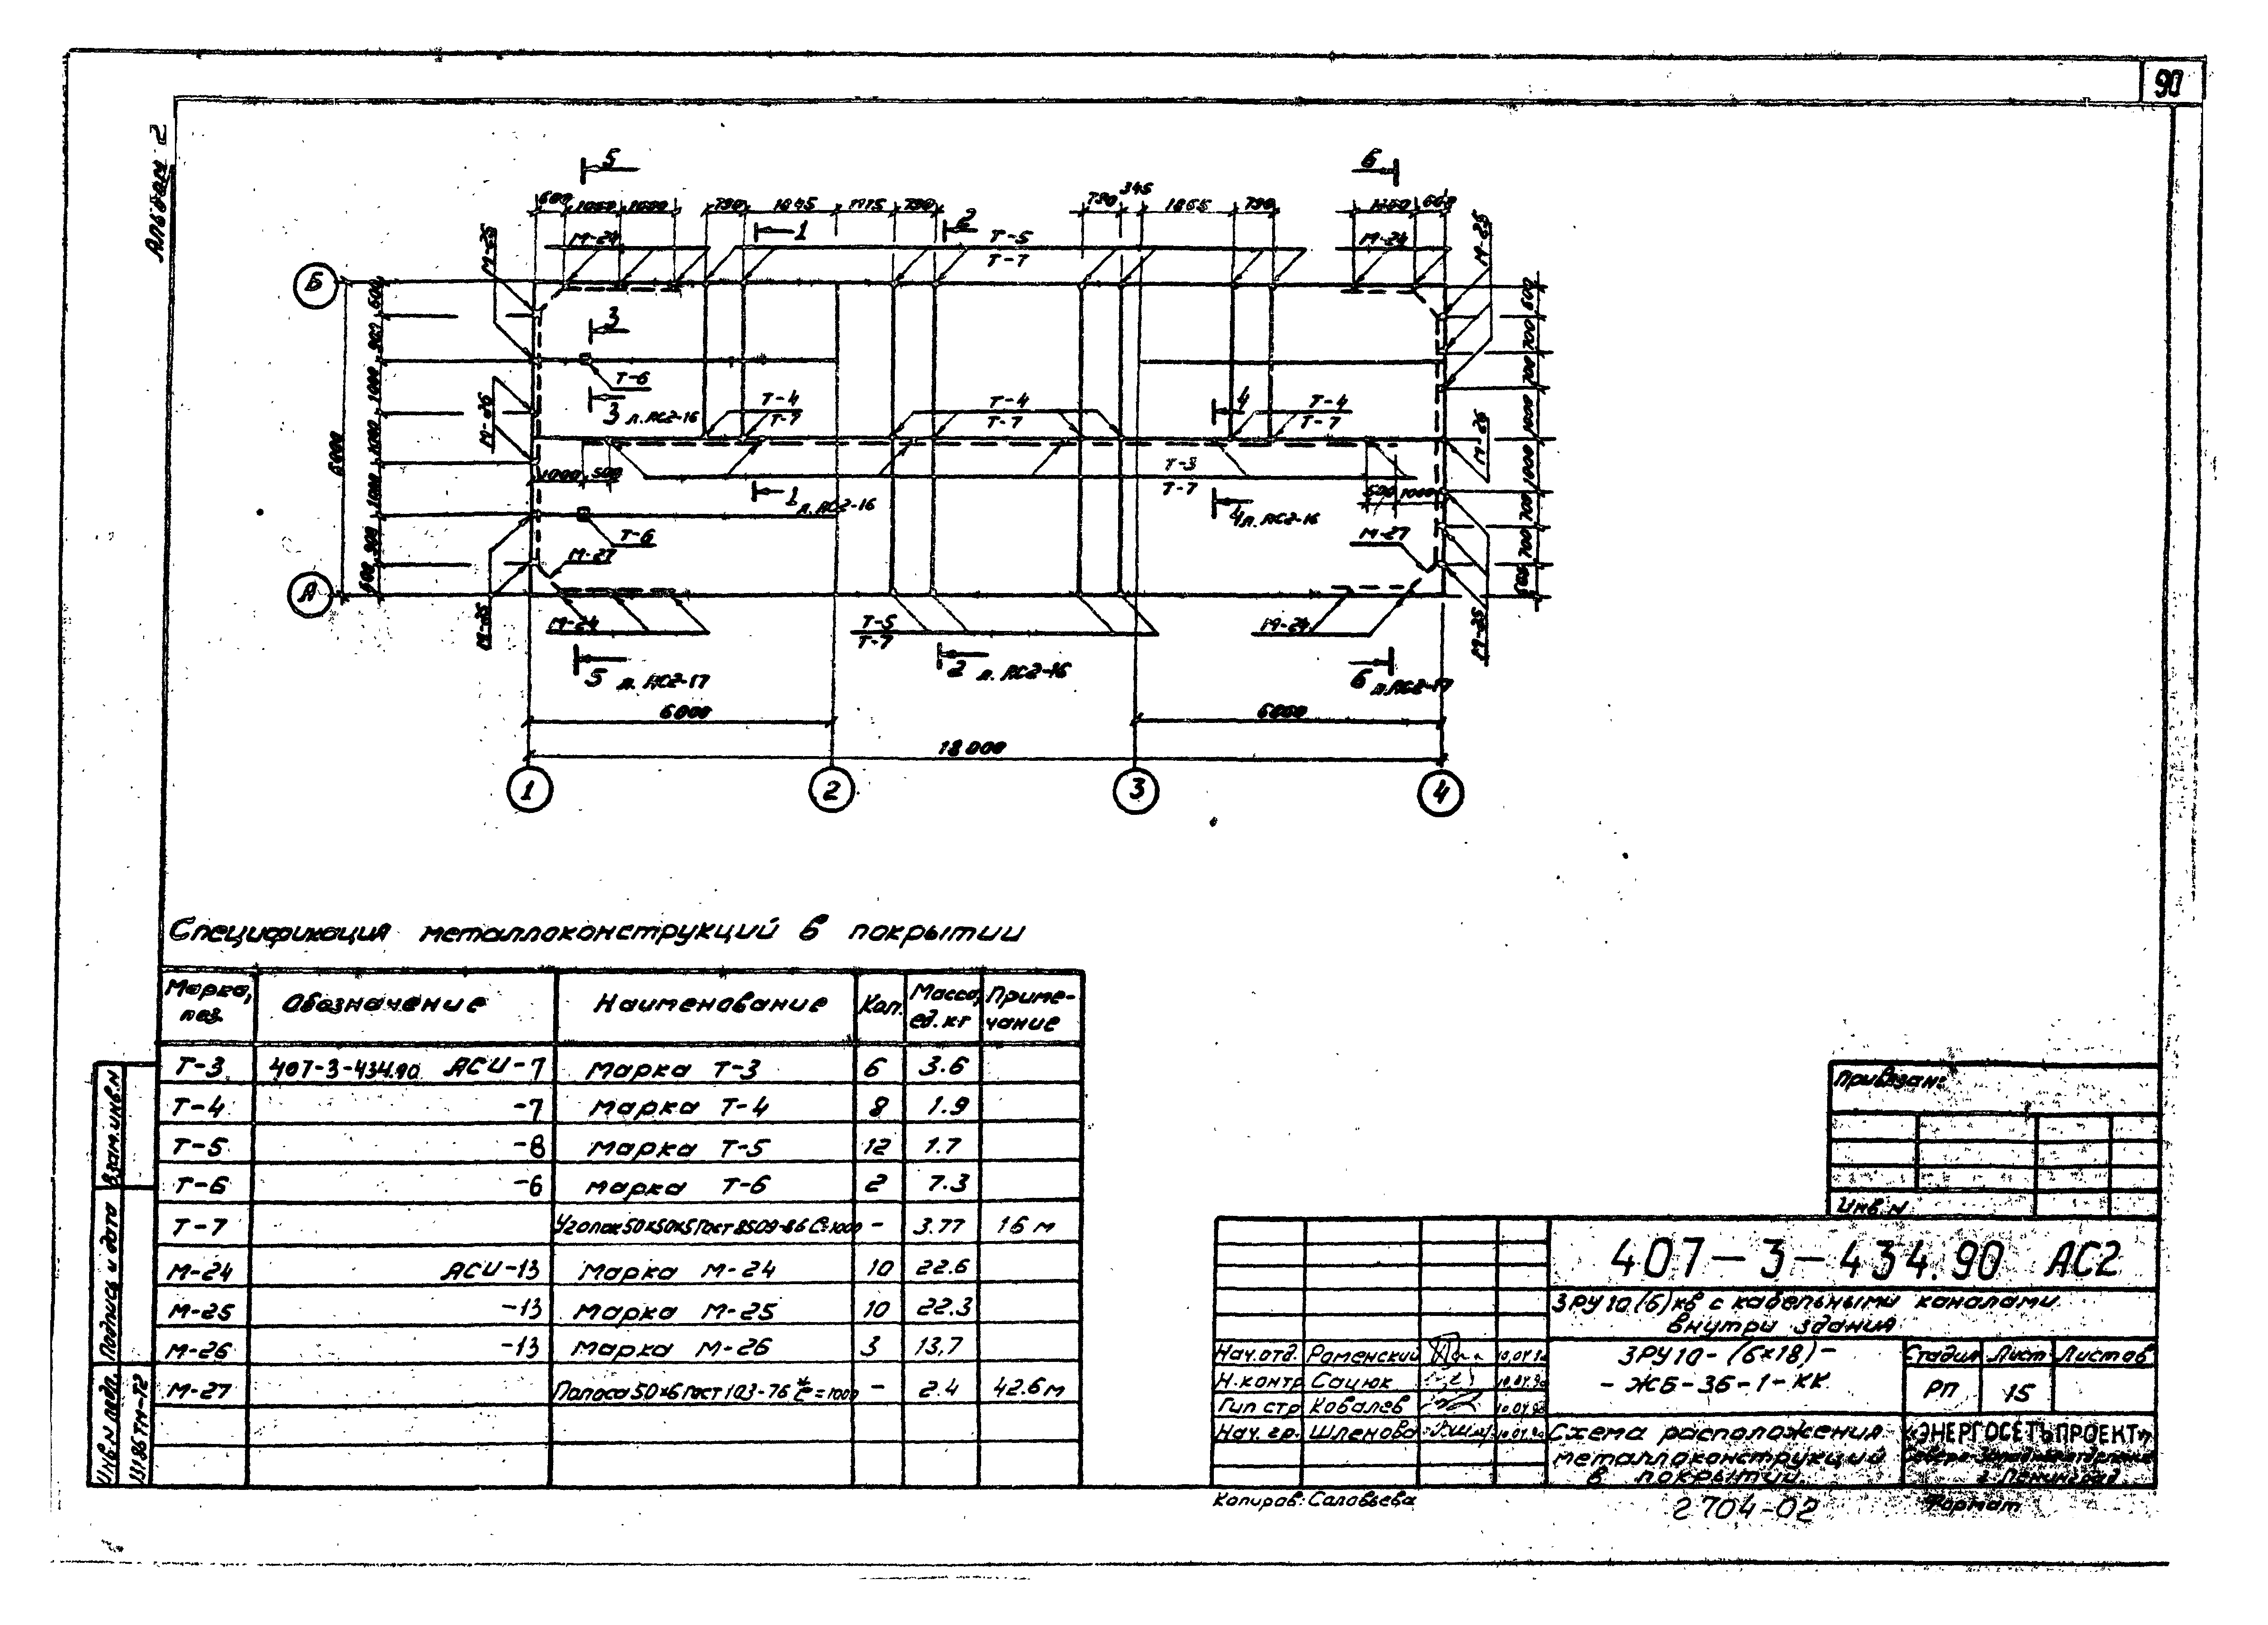 90
Альбом 2
5 6
600 1060 1600 790 1845 1115 790 790 345 1865 790 600
М-24 1 2 Т-5 М-24
Т-7
М-25 М-25
Б
600 900 1000 1000 1000 900 600
6000
600 700 700 1000 1000 700 700
3
Т-6
3 л.АС2-16
Т-4 Т-4 4 Т-4
Т-7 Т-7 Т-7
М-26 М-26
1000 500 Т-3
Т-7
500 1000
1 л.АС2-16 4 л.АС2-16
Т-6 М-27
М-27
А
М-25 М-25
М-24 Т-5 М-24
Т-7
5 л. АС2-17 2 л. АС2-16 6 л.АС2-17
6000 6000
18000
1 2 3 4
Спецификация металлоконструкций в покрытии
Марка, поз. Обозначение Наименование Кол. Масса, ед. кг Примечание
Т-3 407-3-434.90 АСИ-7 Марка Т-3 6 3.6
Т-4 -7 Марка Т-4 8 1.9
Т-5 -8 Марка Т-5 12 1.7
Т-6 -6 Марка Т-6 2 7.3
Т-7 Уголок 50×50×5 Гост 8509-86 ℓ=1000 - 3.77 16 м
М-24 АСИ-13 Марка М-24 10 22.6
М-25 -13 Марка М-25 10 22.3
М-26 -13 Марка М-26 3 13,7
М-27 Полоса 50×6 Гост 103-76* ℓ=1000 - 2.4 42.6 м
Взам.инв.N
Подпись и дата
Инв.N подл.
13186ТМ-Т2
Привязан:
Инв. N
407-3-434.90 АС2
ЗРУ 10 (6) кв с кабельными каналами
внутри здания
Нач.отд. Роменский 10.04.90
Н.контр Сацюк 10.04.90
Гип стр Ковалев 10.04.90
Нач. гр. Шленова 10.04.90
ЗРУ 10-(6×18)-
-ЖБ-36-1-КК
Стадия Лист Листов
РП 15
Схема расположения
металлоконструкций
в покрытии
«ЭНЕРГОСЕТЬПРОЕКТ»
Северо-Западное отделение
г. Ленинград
Копиров: Соловьева
2704-02
Формат